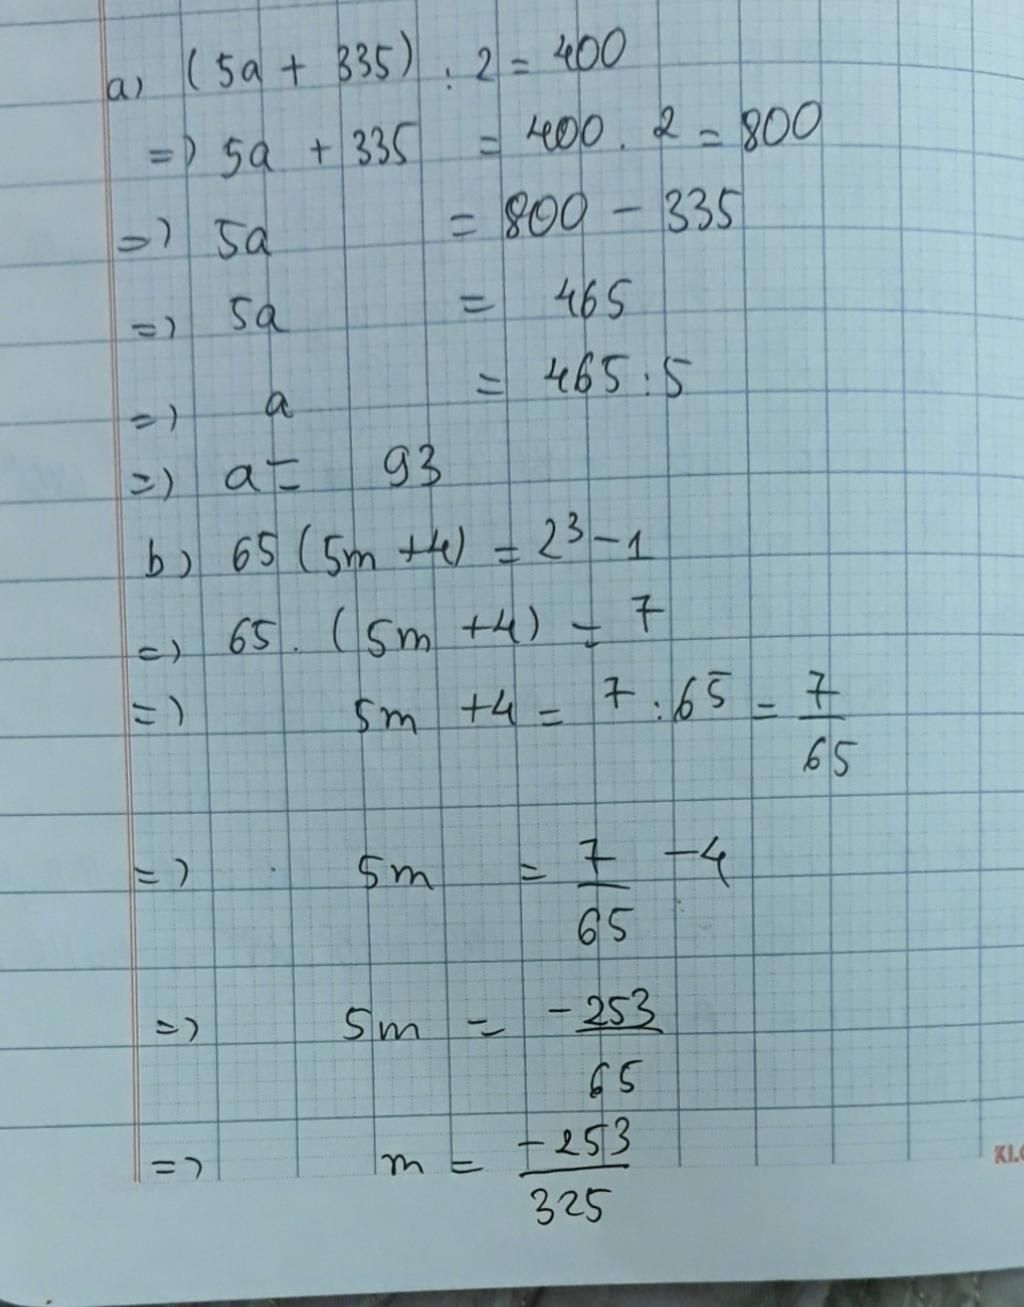 a) (5a + 335) : 2 = 400
=) 5a + 335 = 400 . 2 = 800
=) 5a = 800 - 335
=) 5a = 465
=) a = 465 : 5
=) a = 93
b) 65 (5m + 4) = 2³ - 1
=) 65 . (5m + 4) = 7
=) 5m + 4 = 7 : 65 = 7/65
=) 5m = 7/65 - 4
=) 5m = -253/65
=) m = -253/325